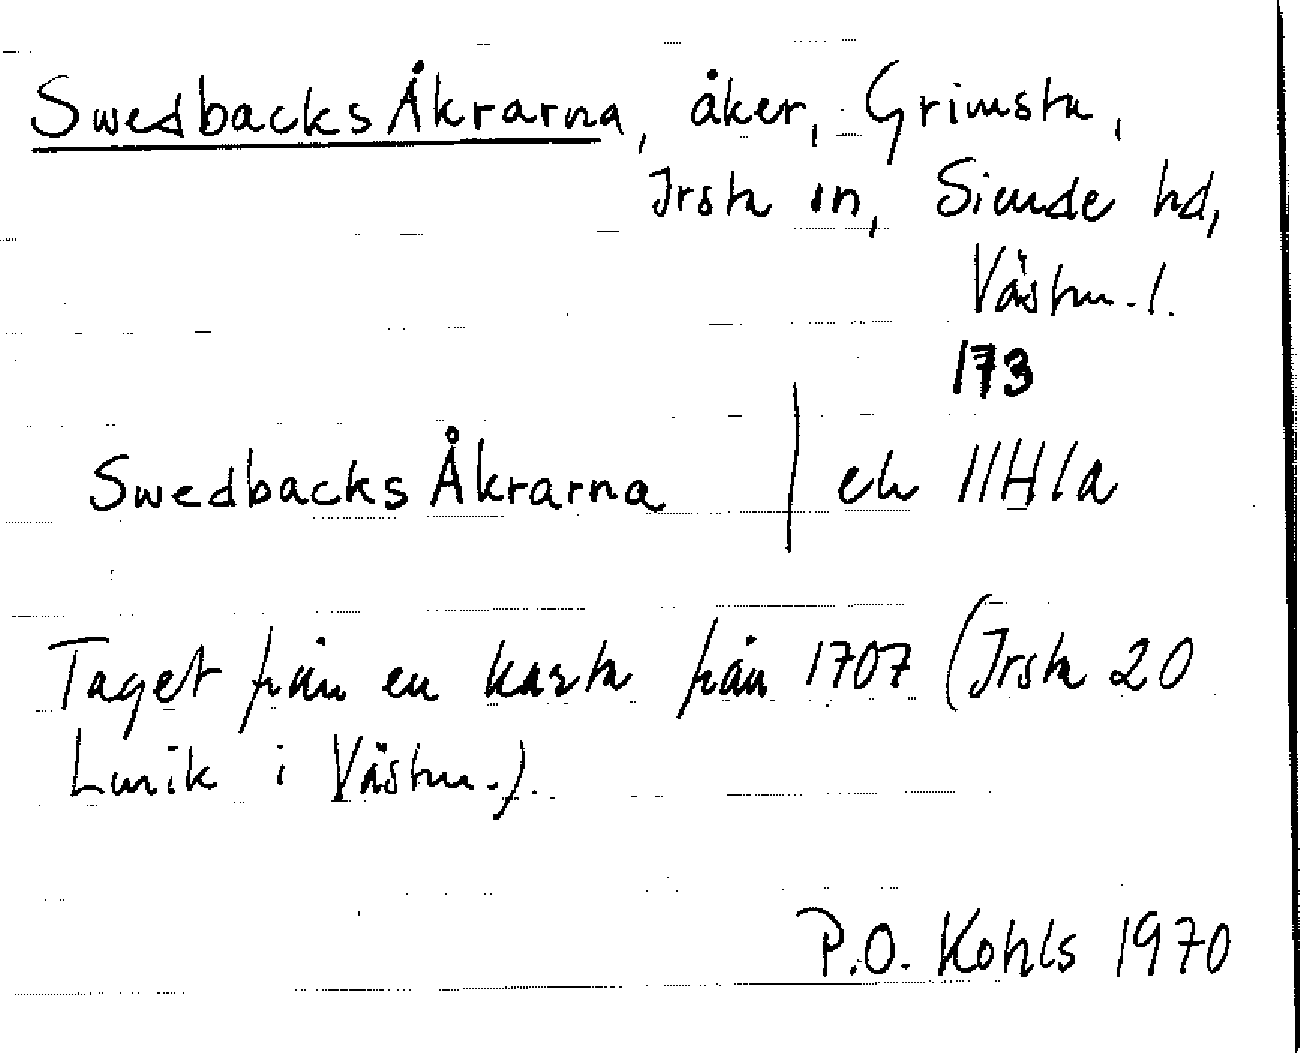 Swedbacks Åkrarna, åker, Grimsta,
Irsta sn, Siende hd,
Västm. l.
173
Swedbacks Åkrarna | ek 11H1a
Taget från en karta från 1707 (Irsta 20
Lmik i Västm.).
P.O. Kohls 1970